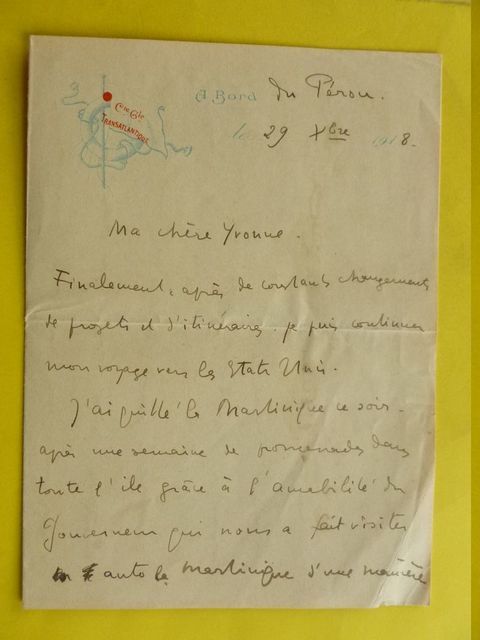 Cie Gle
TRANSATLANTIQUE
A Bord du Pérou.
le 29 Xbre 1918.
Ma chère Yvonne.
Finalement, après de constants changements
de projets et d'itinéraires, je puis continuer
mon voyage vers les Etats Unis.
J'ai quitté la Martinique ce soir.
après une semaine de promenades dans
toute l'île grâce à l'amabilité du
Gouverneur qui nous a fait visiter
en auto la Martinique d'une manière